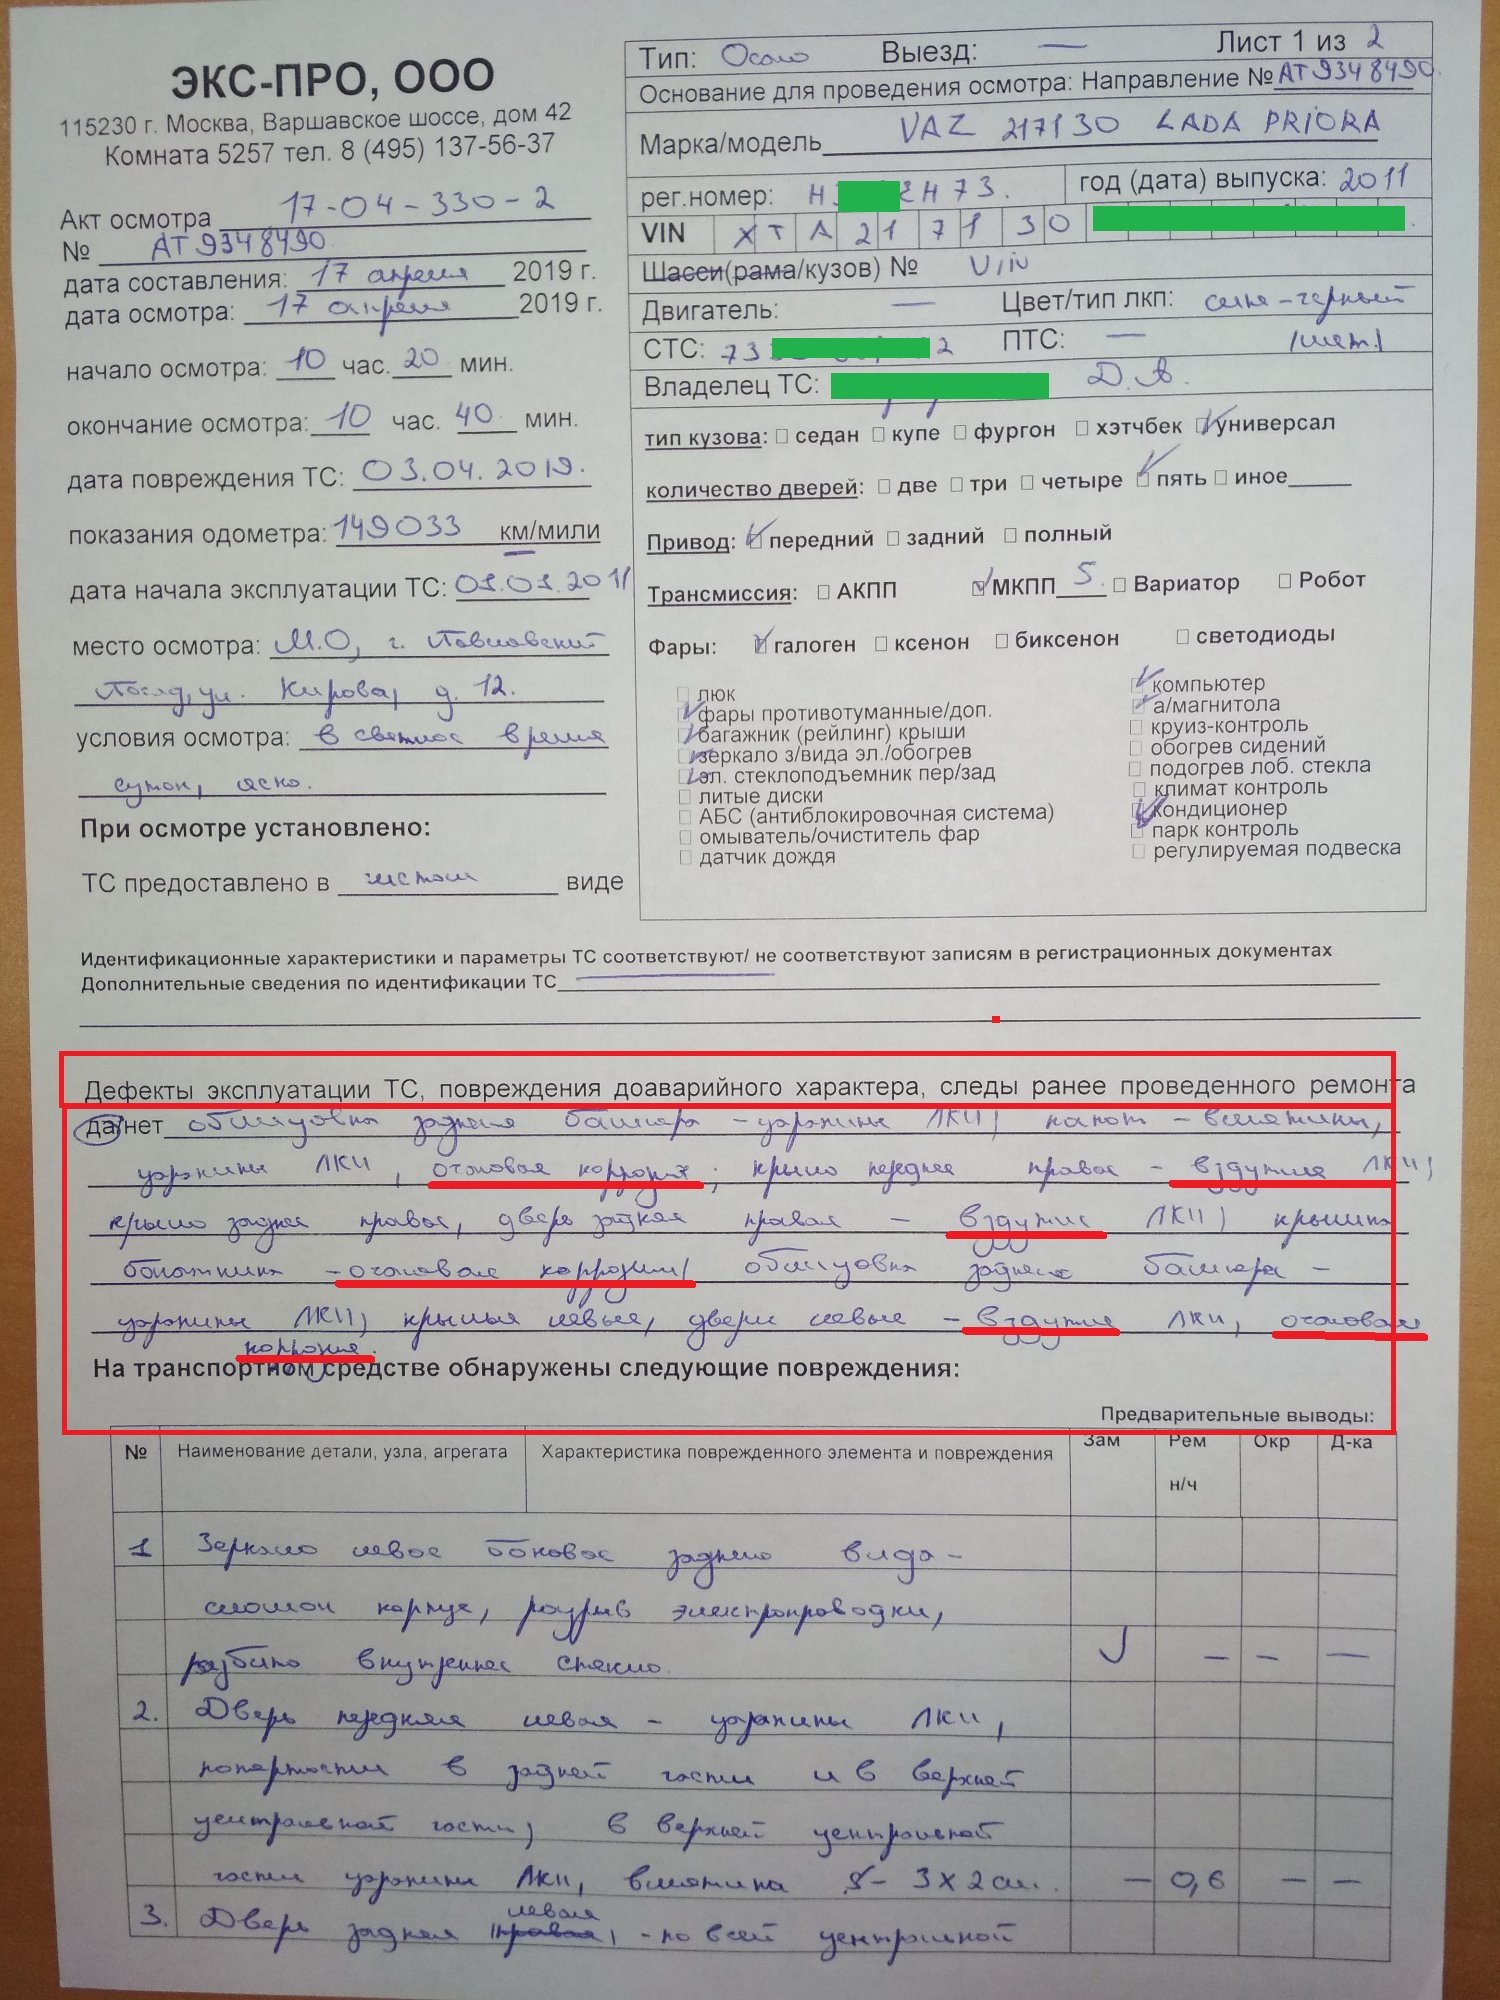 ЭКС-ПРО, ООО
115230 г. Москва, Варшавское шоссе, дом 42
Комната 5257 тел. 8 (495) 137-56-37
Акт осмотра 17-04-330-2
№ АТ9348490
дата составления: 17 апреля 2019 г.
дата осмотра: 17 апреля 2019 г.
начало осмотра: 10 час. 20 мин.
окончание осмотра: 10 час. 40 мин.
дата повреждения ТС: 03.04.2019.
показания одометра: 149033 км/мили
дата начала эксплуатации ТС: 01.01.2011
место осмотра: М.О, г. Павловский
Посад, ул. Кирова, д. 12.
условия осмотра: в светлое время
суток, ясно.
При осмотре установлено:
ТС предоставлено в чистом виде
Тип: Осаго Выезд: — Лист 1 из 2
Основание для проведения осмотра: Направление № АТ9348490.
Марка/модель VAZ 217130 LADA PRIORA
рег.номер: Н Н73. год (дата) выпуска: 2011
VIN XTA217130
Шасси(рама/кузов) № Vin
Двигатель: — Цвет/тип лкп: сине-черный
СТС: 73 2 ПТС: — /мет./
Владелец ТС: Д.А.
тип кузова: седан купе фургон хэтчбек универсал
количество дверей: две три четыре пять иное
Привод: передний задний полный
Трансмиссия: АКПП МКПП 5. Вариатор Робот
Фары: галоген ксенон биксенон светодиоды
люк
фары противотуманные/доп.
багажник (рейлинг) крыши
зеркало з/вида эл./обогрев
эл. стеклоподъемник пер/зад
литые диски
АБС (антиблокировочная система)
омыватель/очиститель фар
датчик дождя
компьютер
а/магнитола
круиз-контроль
обогрев сидений
подогрев лоб. стекла
климат контроль
кондиционер
парк контроль
регулируемая подвеска
Идентификационные характеристики и параметры ТС соответствуют/ не соответствуют записям в регистрационных документах
Дополнительные сведения по идентификации ТС
Дефекты эксплуатации ТС, повреждения доаварийного характера, следы ранее проведенного ремонта
да/нет облицовка заднего бампера - царапины ЛКП; капот - вмятины,
царапины ЛКП, очаговая коррозия; крыло переднее правое - вздутие ЛКП;
крыло заднее правое, дверь задняя правая - вздутие ЛКП; крышка
багажника - очаговая коррозия; облицовка заднего бампера -
царапины ЛКП; крылья левые, двери левые - вздутия ЛКП, очаговая
коррозия.
На транспортном средстве обнаружены следующие повреждения:
Предварительные выводы:
№ Наименование детали, узла, агрегата Характеристика поврежденного элемента и повреждения Зам Рем н/ч Окр Д-ка
1 Зеркало левое боковое заднего вида -
сломан корпус, разрыв электропроводки,
разбито внутреннее стекло. — — —
2. Дверь передняя левая - царапины ЛКП,
потертости в задней части и в верхней
центральной части; в верхней центральной
части царапины ЛКП, вмятина S- 3x2см. — 0,6 — —
левая
3. Дверь задняя правая, - по всей центральной